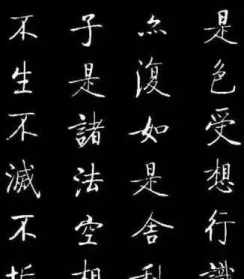 是色受想行識
亦復如是舍利
子是諸法空相
不生不滅不